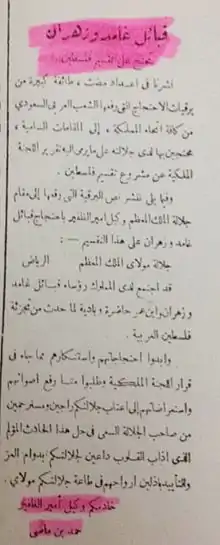 قبائل غامد وزهران
تحتج على تقسيم فلسطين
نشرنا في اعداد مضت ، طائفة كبيرة من
برقيات الاحتجاج التي رفعها الشعب العربي السعودي
من كافة انحاء المملكة ، إلى المقامات السامية ،
محتجين بها لدى جلالته على ما يرمي اليه تقرير اللجنة
الملكية عن مشروع تقسيم فلسطين .
وفيما يلي ننشر نص البرقية التي رفعها إلى مقام
جلالة الملك المعظم وكيل امير الظفير باحتجاج قبائل
غامد وزهران على هذا التقسيم — :
جلالة مولاي الملك المعظم الرياض
قد اجتمع لدى المملوك رؤساء قبائل غامد
وزهران واعربوا حاضرة وبادية لما حدث من تجزئة
فلسطين العربية .
وابدوا احتجاجاتهم واستنكارهم مما جاء في
قرار اللجنة الملكية وطلبوا منا رفع اصواتهم
واعتراضاتهم إلى اعتاب جلالتكم راجين ومسترحمين
من صاحب الجلالة السعي في حل هذا الحادث المؤلم
الذي اذاب القلوب داعين لجلالتكم بدوام العز
والتأييد باذلين ارواحهم في طاعة جلالتكم مولاي .
خادمكم وكيل أمير الظفير
حمد بن ماضي